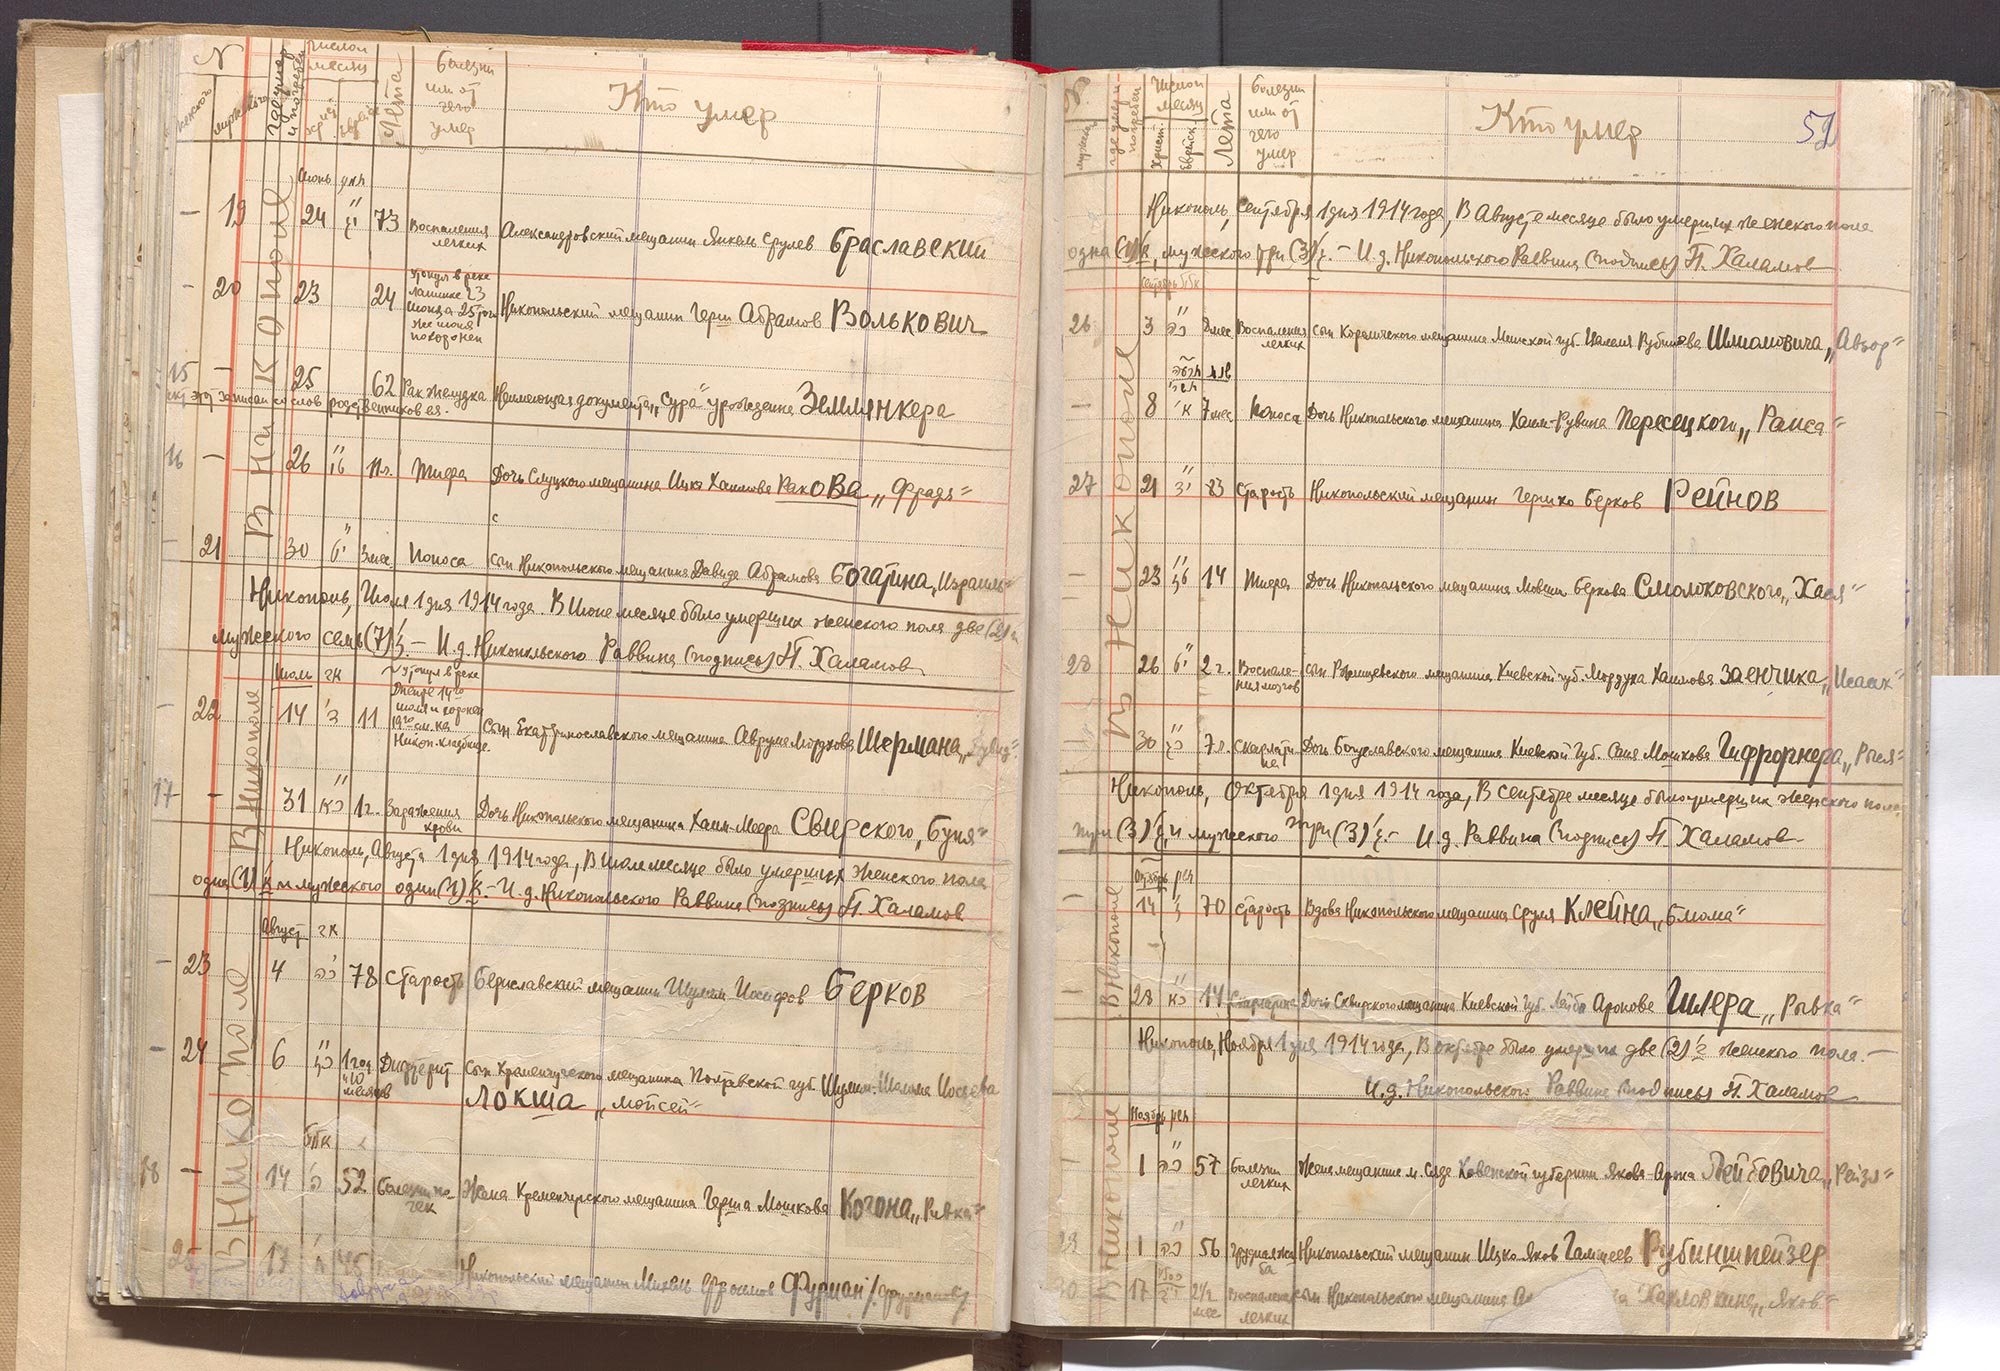 N
где умер и погребен
числом месяц
Лета
Болезни или от чего умер
Кто умер
женского
мужского
Июнь
— 19 24 73 Воспаления легких Александровский мещанин Янкель Срулев Браславский
20 23 24 утонул в реке 23 июня а 25 того же июня похоронен Никопольский мещанин Герш Абрамов Волькович
15 — 25 62 Рак желудка Неимеющая документа „Сура" урожденная Землянкера
этот записан со слов родственников ея.
16 — 26 11 л. Тифа Дочь Слуцкого мещанина Ицка Хаимова Ракова „Фрадя"
— 21 30 3 мес. Поноса Сын Никопольского мещанина Давида Абрамова Богатина „Израиль"
В Никополе
Никополь, Июля 1 дня 1914 года. В Июне месяце было умерших женского пола две (2) и
мужеского семь (7) — И.д. Никопольского Раввина (подпись) П. Халамов
Июль
22 14 11 утонул в реке Днепре 14го июля и похоронен Никоп. кладбище. Сын Екатеринославского мещанина Аврума Мордкова Шермана
17 — 31 1 г. Заражения крови Дочь Никопольского мещанина Хаим-Меера Свирского, „Буня"
В Никополе
Никополь, Августа 1 дня 1914 года, В июле месяце было умерших женского пола
одна (1) и мужеского один (1) — И.д. Никопольского Раввина (подпись) П. Халамов
Август
— 23 4 78 Старость Бериславский мещанин Шулим Иосифов Берков
— 24 6 1 год и 10 месяцев Дифтерит Сын Кременчугского мещанина Полтавской губ. Шулим-Шахма Иосева
Локша „Мойсей"
18 — 14 52 Болезни почек Жена Кременчугского мещанина Герша Мошкова Когона „Ривка"
25 Никопольский мещанин Михель Фроимов Фурман
В Никополе
N
где умер и погребен
Числом месяц
Христ.
Еврейск.
Лета
Болезни или от чего умер
Кто умер
52
Никополь, Сентября 1 дня 1914 года, В Августе месяце было умерших женского пола
одна (1), мужеского три (3) — И.д. Никопольского Раввина (подпись) П. Халамов
Сентябрь
26 3 Воспаления легких Сын Минской губ. Шлиомовича „Авзор"
— 8 7 мес Поноса Дочь Никопольского мещанина Хаим-Рувина Пересецкого „Раися"
27 21 83 Старость Никопольский мещанин Гершко Берков Рейнов
— 23 14 Тифа Дочь Никопольского мещанина Мовши Беркова Смолоковского „Хася"
28 26 2 г. Воспаления мозгов Сын Ржищевского мещанина Киевской губ. Мордуха Хаимова Заенчика „Исаак"
— 30 7 л. Скарлатина Дочь Богуславского мещанина Киевской губ. Мошкова „Рыся"
В Никополе
Никополь, Октября 1 дня 1914 года, В Сентябре месяце было умерших женского пола
три (3) и мужеского три (3) — И.д. Раввина (подпись) П. Халамов
Октябрь
— 14 70 Старость Вдова Никопольского мещанина Сруля Клейна „Блюма"
— 28 14 Скарлатина Дочь Сквирского мещанина Киевской губ. Лейба Аронова „Рывка"
В Никополе
Никополь, Ноября 1 дня 1914 года, В октябре было умерших две (2) женского пола. —
И.д. Никопольского Раввина (подпись) П. Халамов
Ноябрь
— 1 57 Болезни легких Жена мещанина м. Сяде Ковенской губернии Янкова-Арона Лейбовича „Рейзя"
29 1 56 Грудная жаба Никопольский мещанин Ицко-Яков Рубинштейзер
30 17 2½ мес Воспаления легких Сын Никопольского мещанина „Яков"
В Никополе